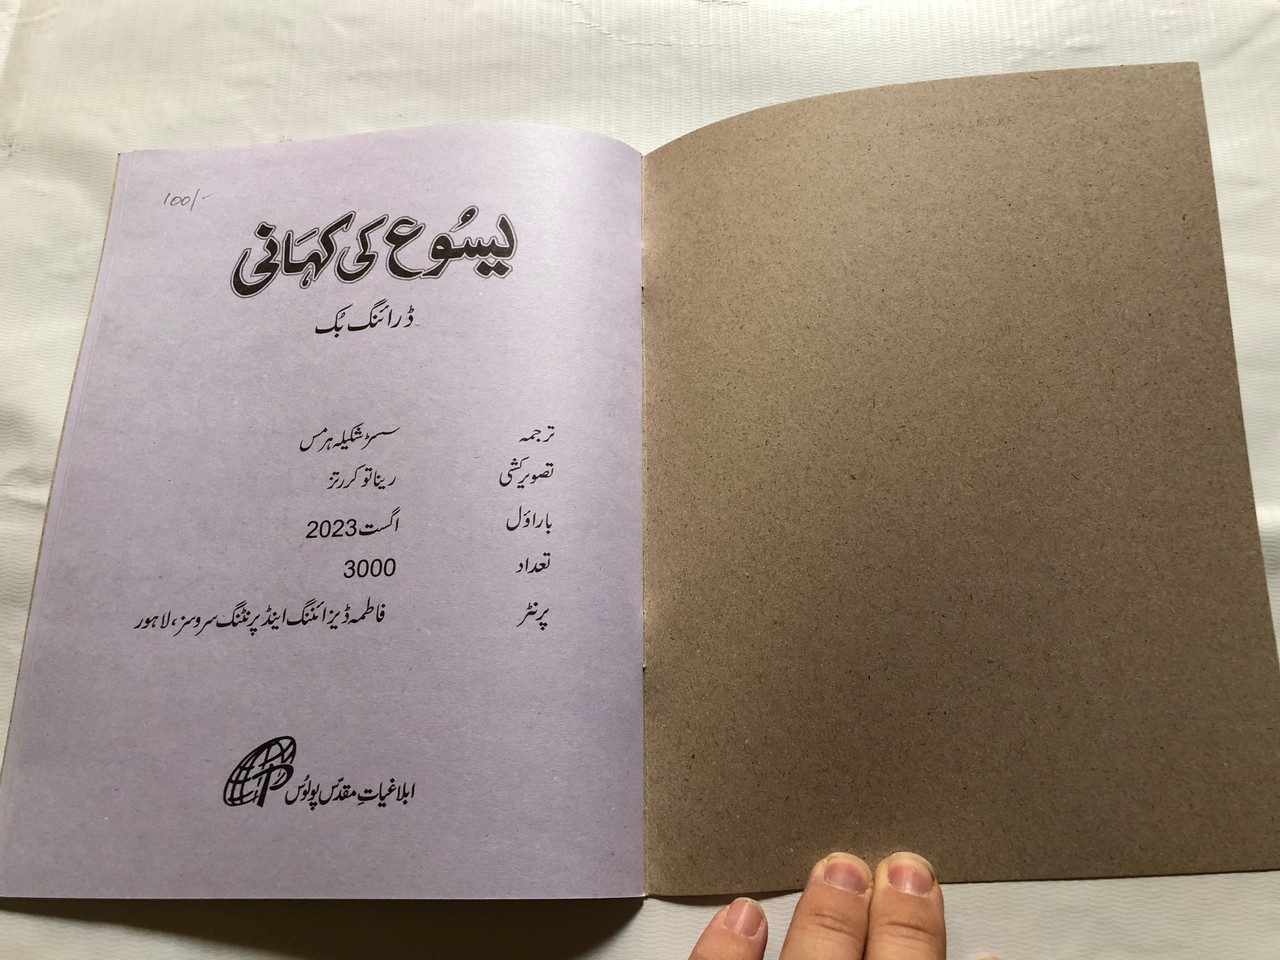 100/-
یسُوع کی کہَانی
ڈرائنگ بُک
ترجمہ سسٹر شکیلہ ہرمس
تصویر کشی ریناتو کررتز
بار اوّل اگست 2023
تعداد 3000
پرنٹر فاطمہ ڈیزائننگ اینڈ پرنٹنگ سروسز، لاہور
ابلاغیاتِ مقدّس پولوُس